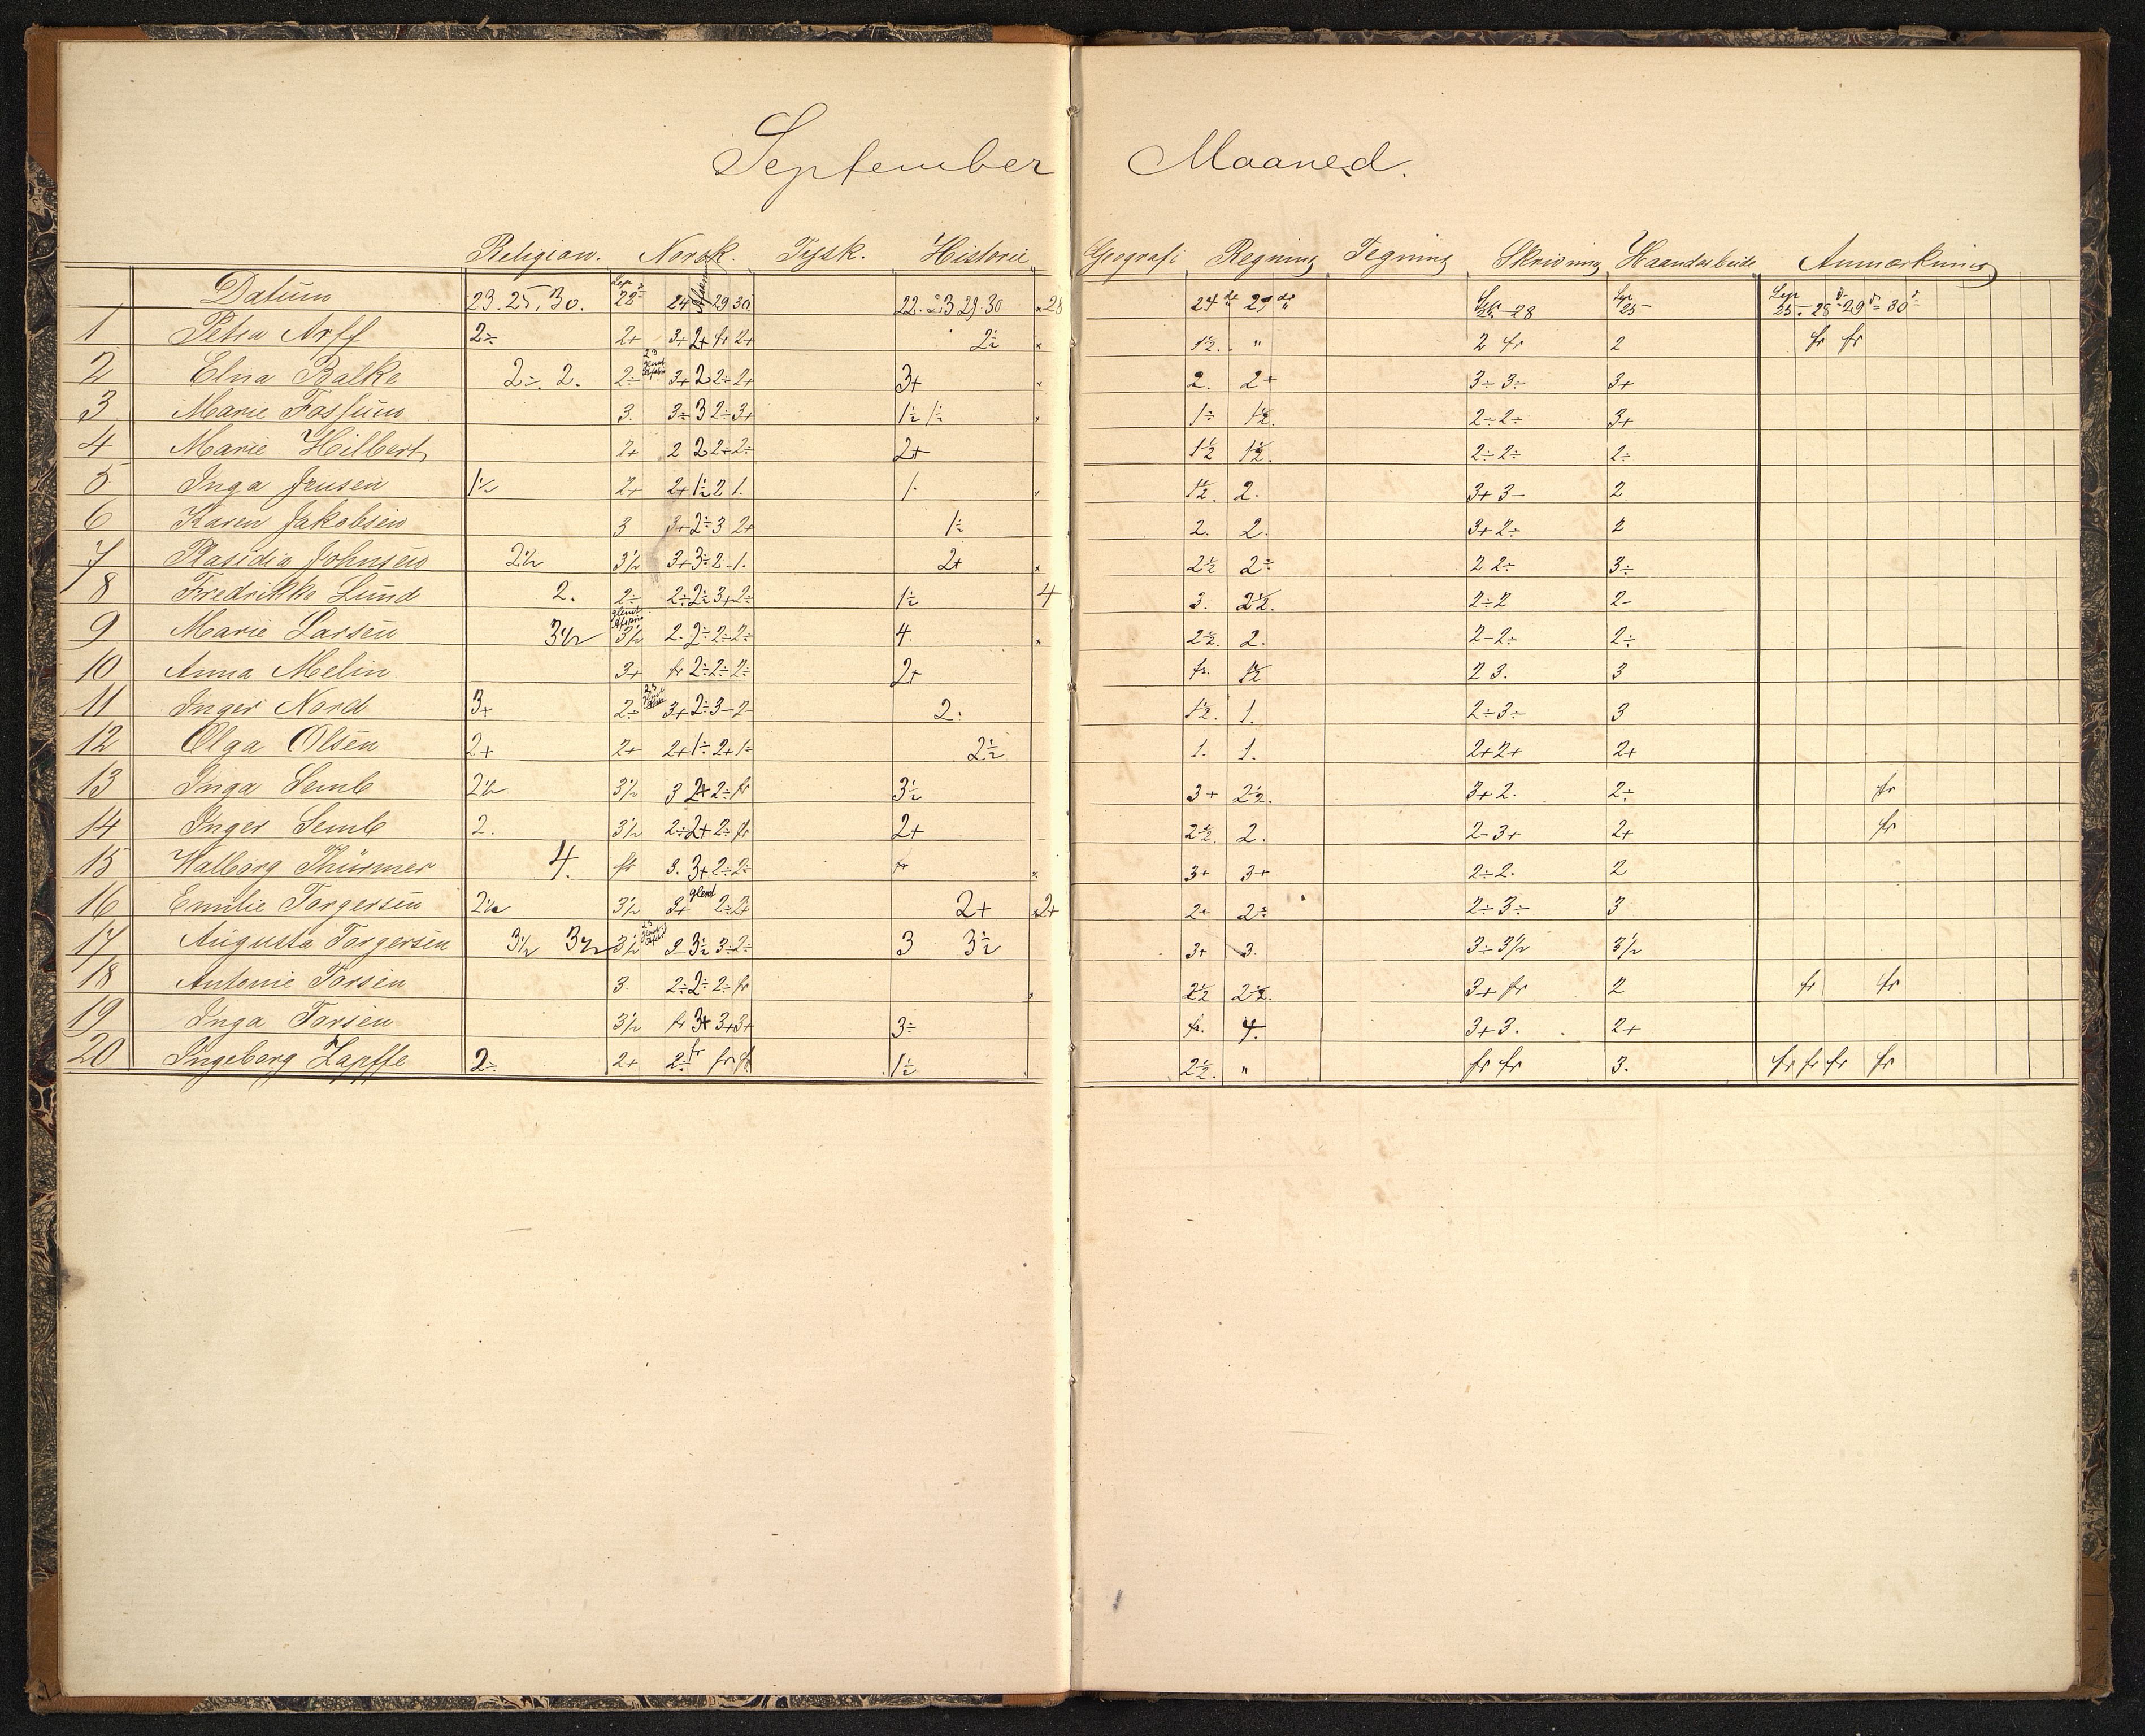 September Maaned.
Religion. Norsk. Tysk. Historie Geografi Regning Tegning Skrivning Haandarbeide Anmærkning
Datum 23. 25. 30. Sep 28 24 29 30. 22. 23 29. 30 28 24de 29de 28 Sep 25 Sep 25. 28 29 30
1 Petra Arff 2÷ 2+ 3+ 2+ fr 2+ 2½ 1½. " 2 fr 2 fr fr
2 Elna Balke 2÷. 2. 2÷ 23 3+ 2 2÷ 2+ 3+ 2. 2+ 3÷ 3÷ 3+
3 Marie Fossum 3. 3÷ 3 2÷ 3+ 1½ 1½ 1÷ 1½. 2÷ 2÷ 3+
4 Marie Hilbert 2+ 2 2 2÷ 2÷ 2+ 1½ 1½. 2÷ 2÷ 2÷
5 Inga Jensen 1½ 2+ 2+ 1½ 2 1. 1. 1½. 2. 3+ 3- 2
6 Karen Jakobsen 3 3+ 2÷ 3 2+ 1½ 2. 2. 3+ 2÷ 2
7 Plasidia Johnsen 2½ 3½ 3+ 3÷ 2-1. 2+ 2½ 2÷ 2 2÷ 3÷
8 Fredrikke Lund 2. 2÷ 2÷ 2½ 3+ 2÷ 1½ 4 3. 2½. 2÷ 2 2-
9 Marie Larsen 3½ glemt 3½ 2. 2÷ 2÷ 2÷ 4. 2½. 2. 2-2÷ 2÷
10 Anna Melin 3+ fr 2÷ 2÷ 2÷ 2+ fr. 1½ 2 3. 3
11 Inger Nord 3+ 2÷ 23 3+ 2÷ 3-2- 2. 1½. 1. 2÷ 3÷ 3
12 Olga Olsen 2+ 2+ 2+ 1÷ 2+ 1÷ 2½ 1. 1. 2+ 2+ 2+
13 Inga Semb 2½ 3½ 3 2+ 2÷ fr 3½ 3+ 2½. 3+ 2. 2÷ fr
14 Inger Semb 2. 3½ 2÷ 2+ 2÷ fr 2+ 2½. 2. 2-3+ 2+ fr
15 Valborg Thürmer 4. fr 3. 3+ 2÷ 2÷ fr 3+ 3+ 2÷ 2. 2
16 Emilie Torgersen 2½ 3½ 3+ glemt 2÷ 2+ 2+ 2+ 2+ 2÷ 2÷ 3÷ 3
17 Augusta Torgersen 3½ 3½ 3½ 23 3-3½ 3÷ 2÷ 3 3½ 3+ 3. 3÷ 3½ 3½
18 Antonie Torsen 3. 2÷ 2÷ 2÷ fr 2½ 2½. 3+ fr 2 fr fr
19 Inga Torsen 3½ fr 3+ 3+ 3+ 3÷ fr. 4. 3+ 3. 2+
20 Ingeborg Zapffe 2÷ 2+ 2÷ fr fr fr 1½ 2½. " fr fr 3. fr fr fr fr